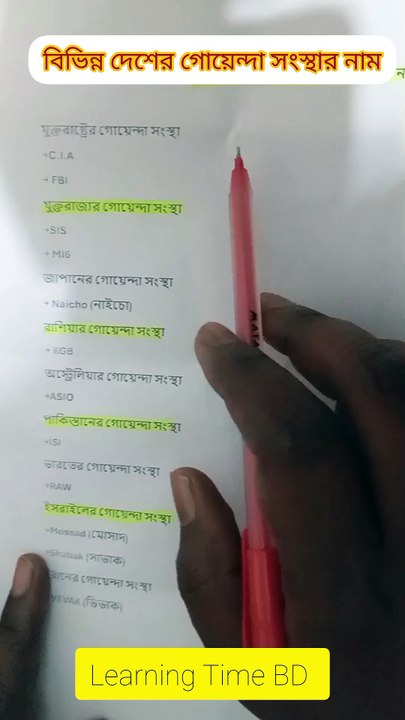 বিভিন্ন দেশের গোয়েন্দা সংস্থার নাম
যুক্তরাষ্ট্রের গোয়েন্দা সংস্থা
+C.I.A
+ FBI
যুক্তরাজ্যের গোয়েন্দা সংস্থা
+SIS
+ MI6
জাপানের গোয়েন্দা সংস্থা
+ Naicho (নাইচো)
রাশিয়ার গোয়েন্দা সংস্থা
+ KGB
অস্ট্রেলিয়ার গোয়েন্দা সংস্থা
+ASIO
পাকিস্তানের গোয়েন্দা সংস্থা
+ISI
ভারতের গোয়েন্দা সংস্থা
+RAW
ইসরাইলের গোয়েন্দা সংস্থা
+Mossad (মোসাদ)
+Shabak (সাভাক)
রানের গোয়েন্দা সংস্থা
VEVAK (ভিভাক)
Learning Time BD